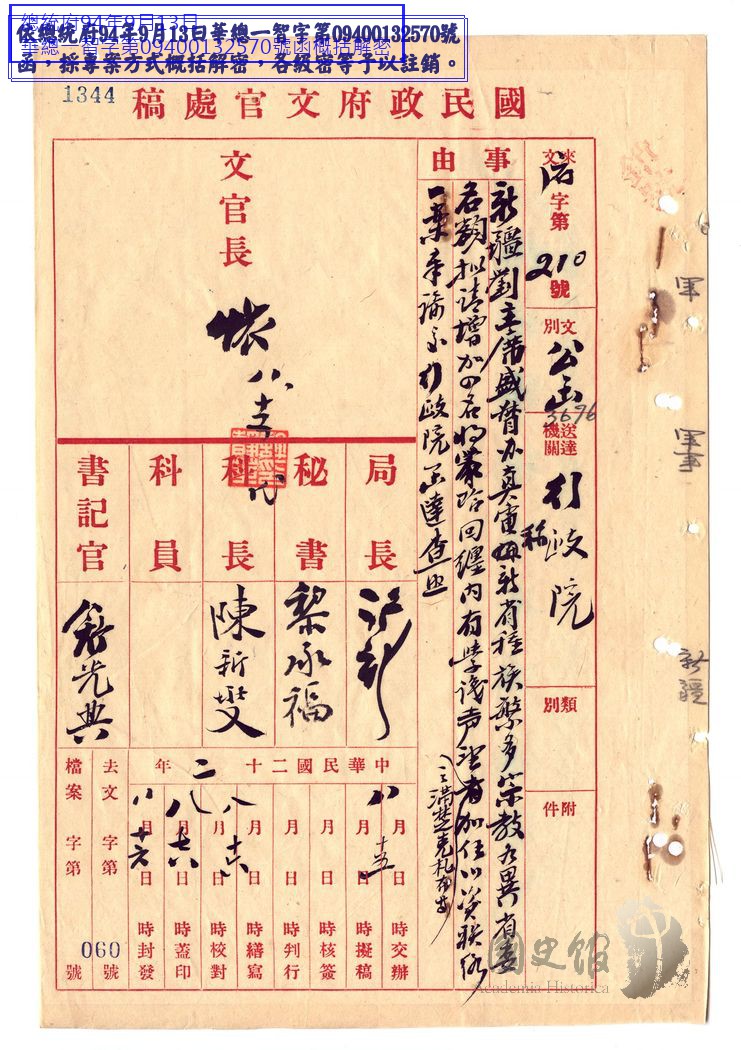 總統府94年9月13日
華總一智字第09400132570號函概括解密
依總統府94年9月13日華總一智字第09400132570號
函，採專案方式概括解密，各級密等予以註銷。
1344
國民政府文官處稿
來文
字第
210
號
文別
公函
3696
送達機關
行政院
類別
附件
事由
新疆劉主席盛督辦真電稱新省種族繁多宗教各異省委
名額擬請增加四名將蒙哈回纏內有學識声望者加任以資聯絡
之滿楚克札布等
一案奉諭交行政院函達查照
文官長
八
局長
秘書
黎承福
科長
陳新燮
科員
書記官
舒光典
中華民國二十二年
八月十五日時交辦
月日時擬稿
月日時核簽
月日時判行
月日時繕寫
八月十六日時校對
八月十六日時蓋印
八月十六日時封發
去文字第號
檔案字第060號
軍
軍事
新疆
國史館
Academia Historica